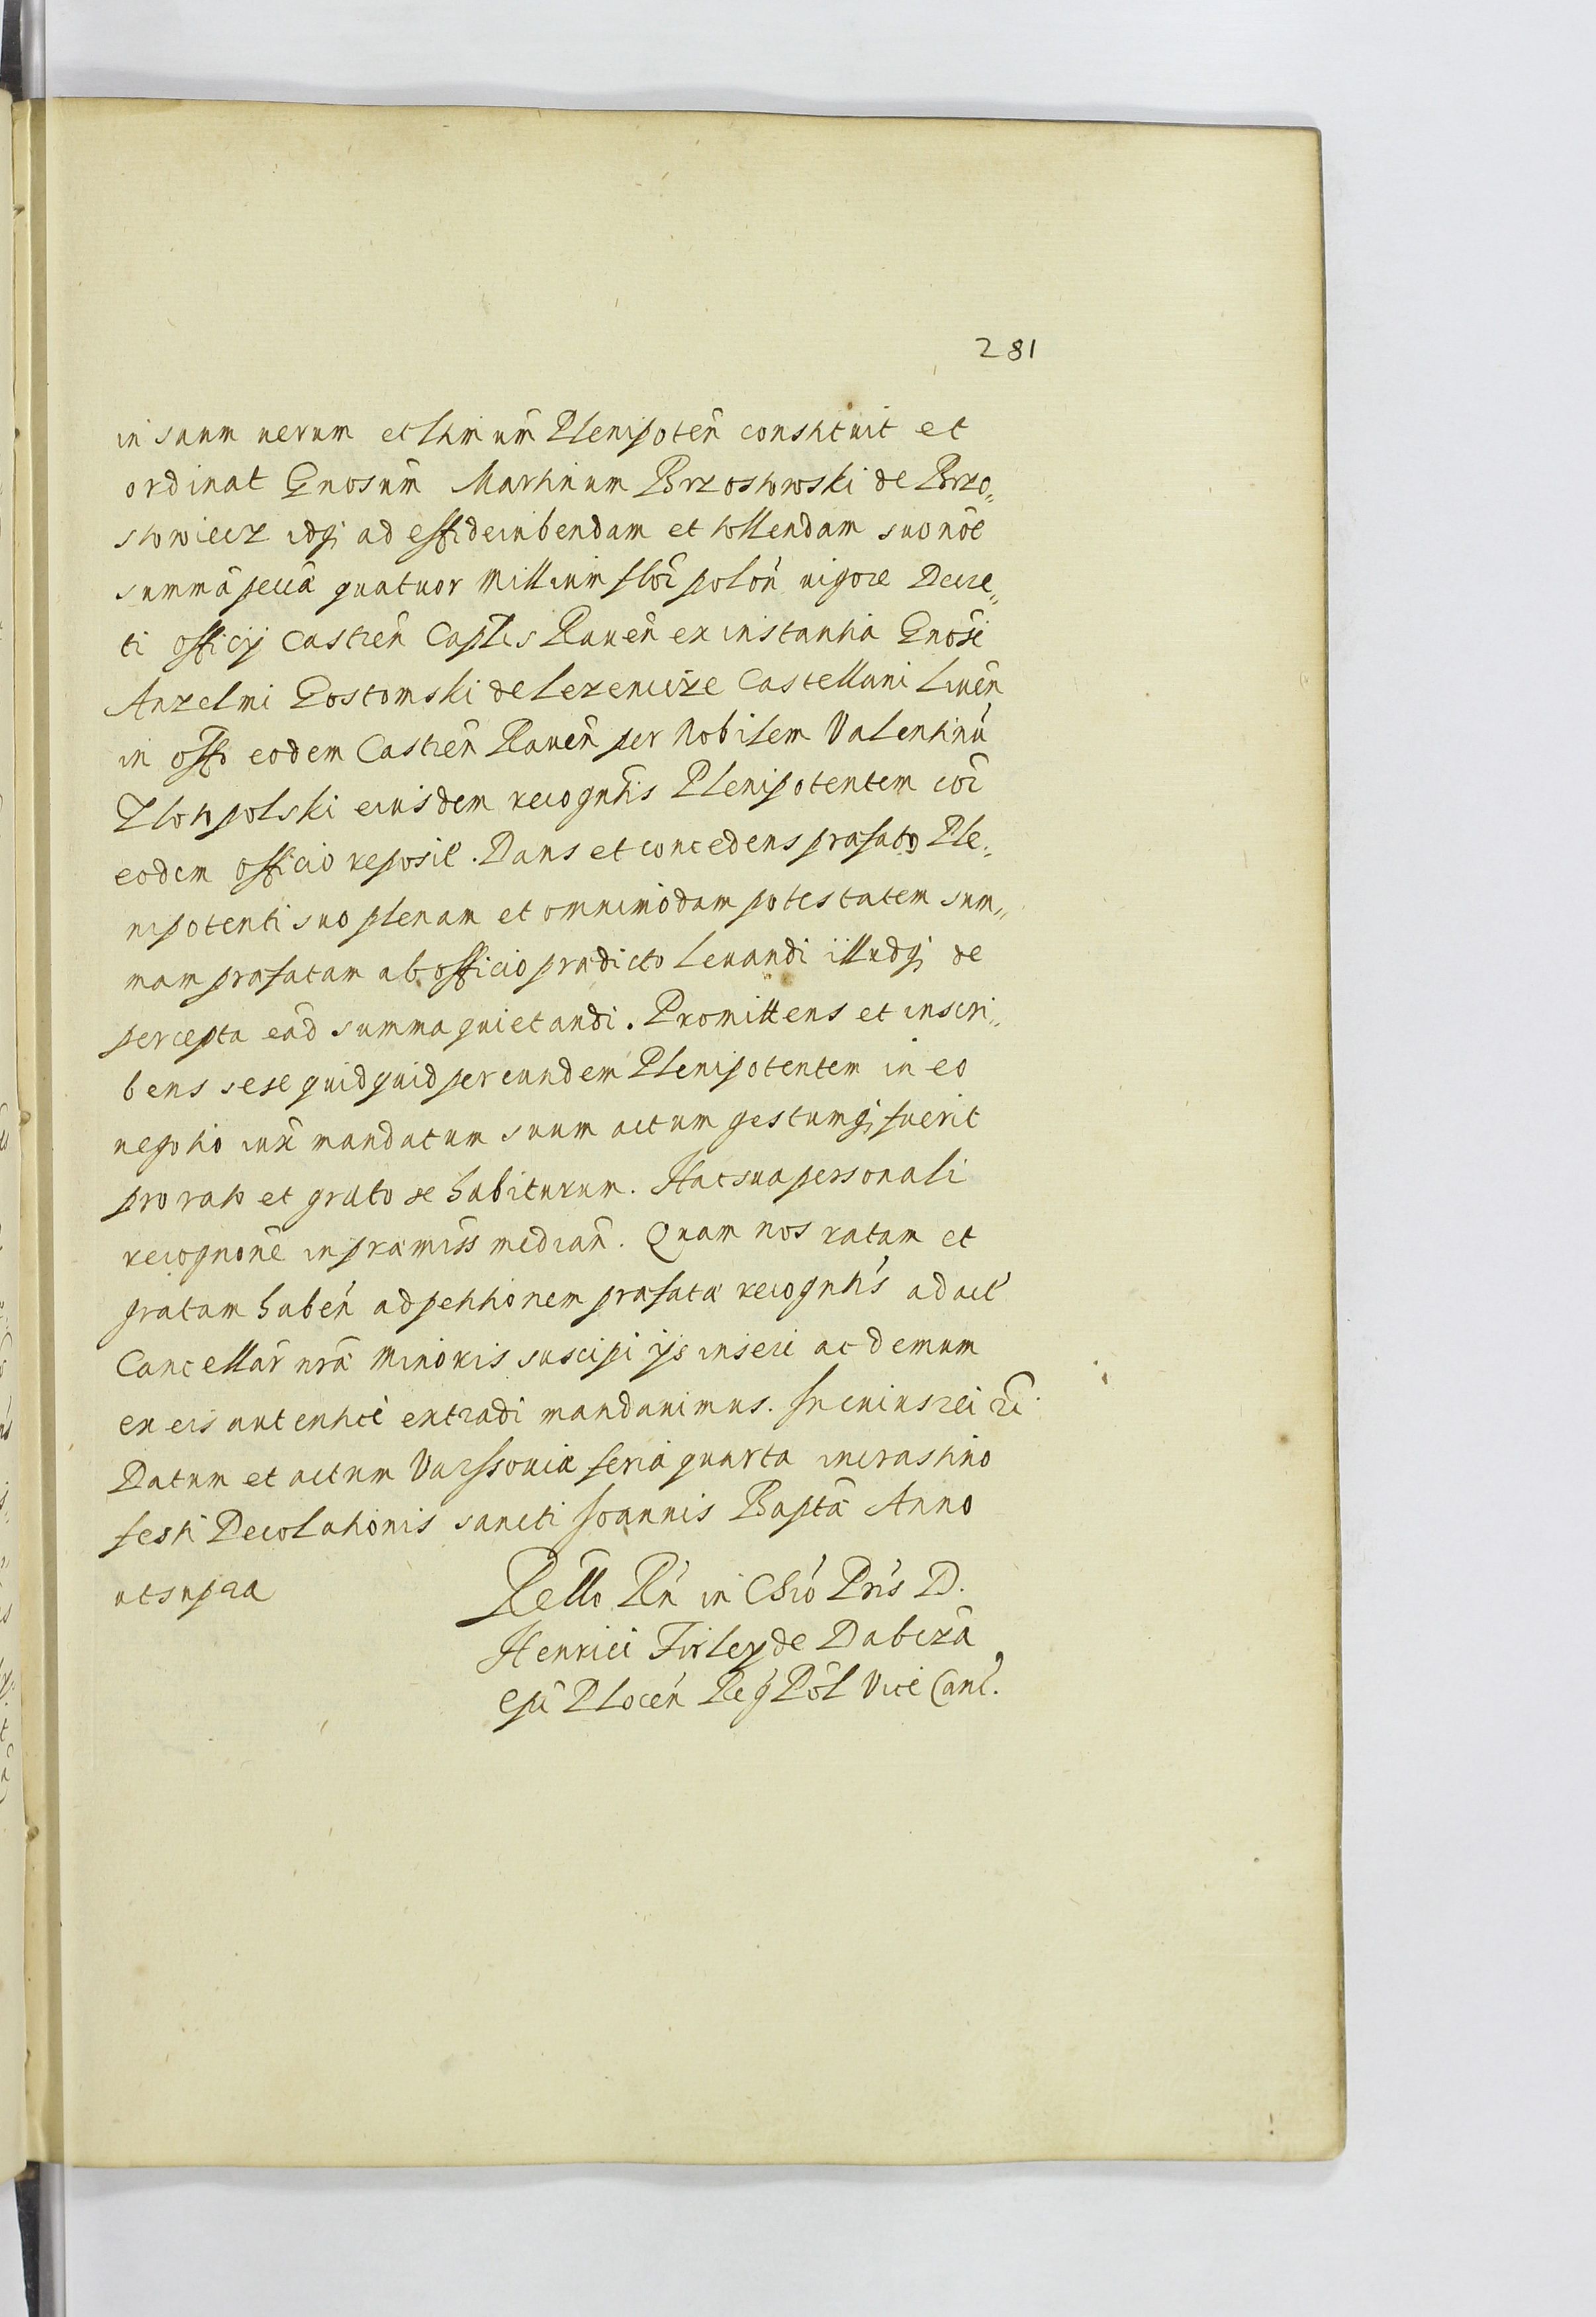 281
in suum uerum et lhmũm Plenipoteñ constituit et
ordinat Gnosum̃ Martinum Brzostowski de Brzo„
stowiecz idq; ad effi deinbendam et tollendam suo nõe
summã pecũa quatuor Millium floř polon̄ uigore Decre„
ti officij Castreñ Captlis Raueñ ex instantia Gnosĩ
Anzelmi Gostomski de Lezenicze Castellani Liueñ
in offo eodem Castreñ Raueñ per Nobilem Valentinũ
Zlotopolski eiusdem recogntis̃ Plenipotentem coř
eodem officio reposit̃. Dans et concedens præfato Ple„
nipotenti suo plenam et omnimodam potestatem sum„
mam præfatam ab officio prædicto leuandi illudq; de
percepta eãd summa quietandi. Promittens et inscri„
bens sese quidquid per eundem Plenipotentem in eo
negotio iux̃ mandatum suum actum gestumq; fuerit
pro rato et grato se habiturum. Hac sua personali
recognoñe in præmiss̃ median̄. Quam nos ratam et
gratam habeń ad petitionem præfatæ recogntis̃ ad act̃
Cancellar̃ nr̃æ Minoris suscipi ijs inseri ac demum
ex eis autentice extradi mandauimus. In cuius rei
Datum et actum Varssouiæ feria quarta in crastino
festi Decolationis sancti Joannis Baptæ̃ Anno
ut supra
Rello Rń in Chřo Pris̃ D.
Henrici Firley de Dabrowicza
Epĩ Ploceń Reǵ Pol̃ Vice Canc̃.